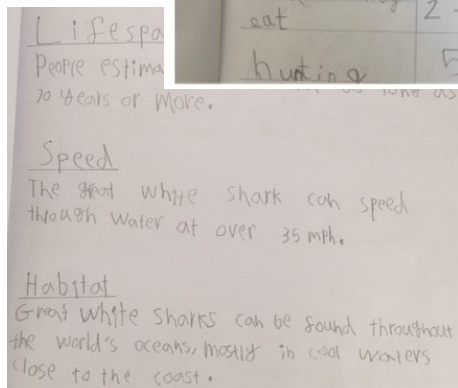 eat 2
hunting 5
Lifespa
People estima
70 years or more.
Speed
The great white shark can speed
through water at over 35 mph.
Habitat
Great white sharks can be found throughout
the world's oceans, mostly in cool waters
close to the coast.